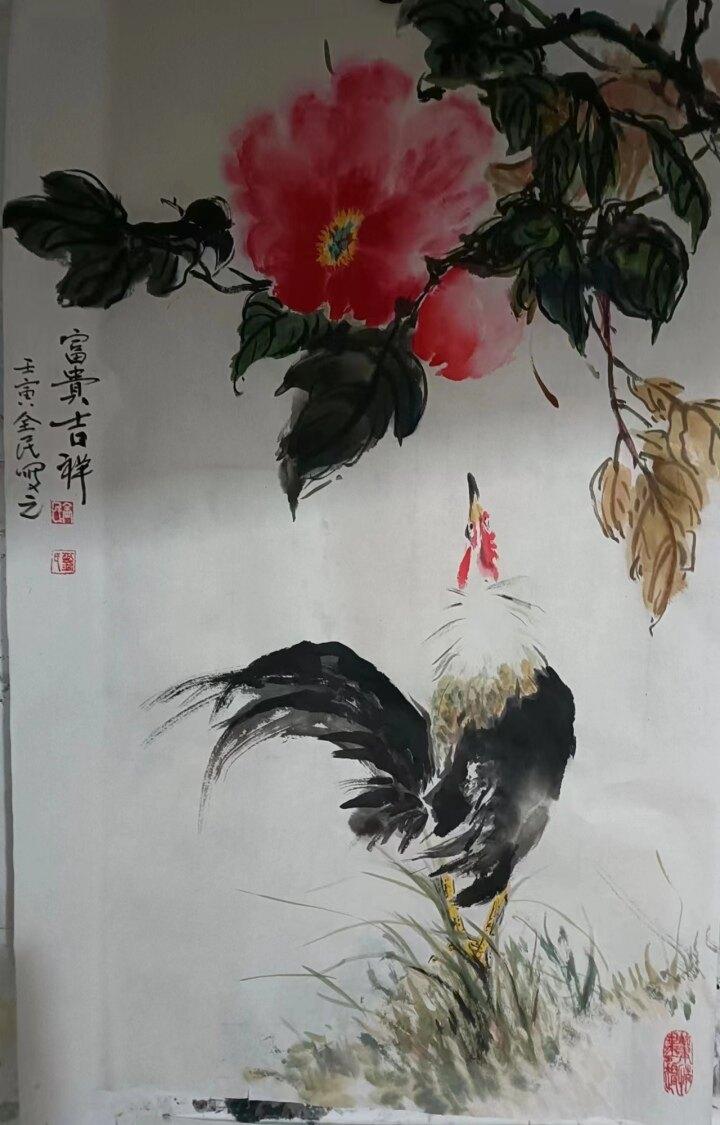 富貴吉祥
壬寅全民寫之